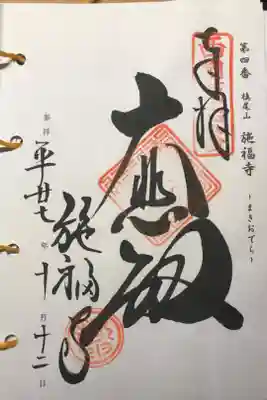 第四番 槇尾山 施福寺 ~まきおでら~
奉拝
大悲殿
施福寺
参拝 平廿七年十月十二日